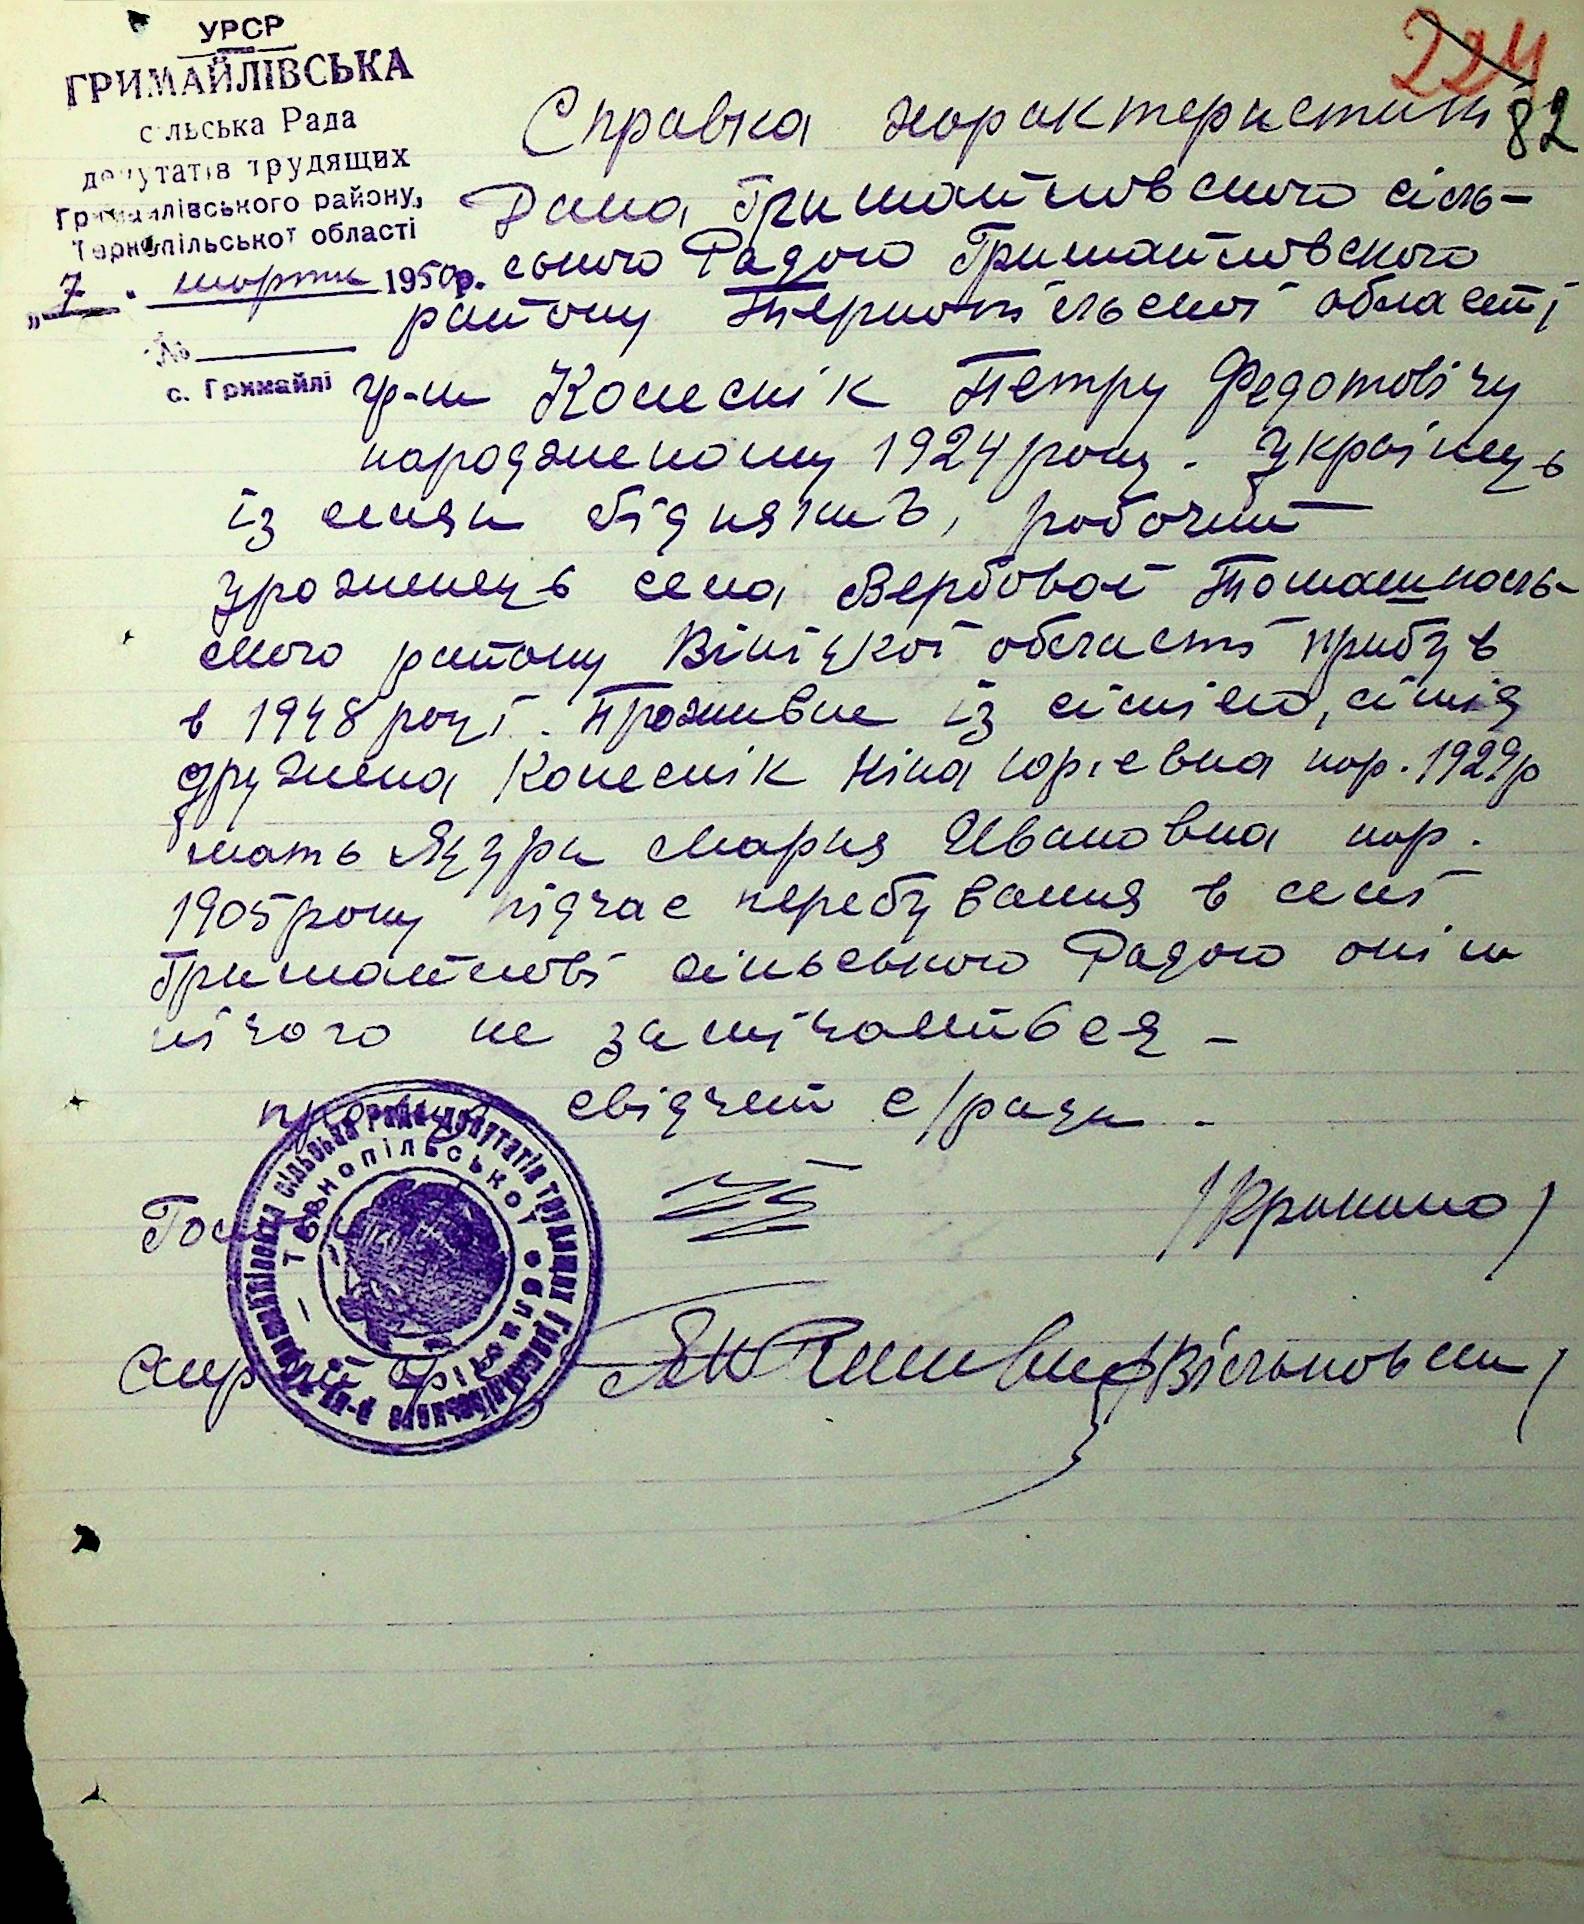 УРСР
ГРИМАЙЛІВСЬКА
сільська Рада
депутатів трудящих
Гримайлівського району,
Тернопільської області
„7" марта 1950р.
№
с. Гримайлів
224
82
Справка характеристика
Дана Гримайловского сіль-
ського Радою Гримайловского
району Тернопільскої області
гр-ну Колеснік Петру Федотовічу
народженому 1924 року. Українець
із селян бідняків, робочий
уроженець села Вербової Томашполь-
ского району Вініцкої області прибув
в 1948 році. Проживає із сімією, сімія
дружена Колеснік Ніна Юрієвна нар. 1929р
мать Яцура Мария Ивановна нар.
1905 року підчас перебування в селі
Гримайлові сільського Радою опіш
нічого не замічаїться -
про що свідчит с/рада -
Голова
Секретар
ГРИМАЙЛІВСЬКА сільська Рада депутатів трудящих Гримайлівського р-ну
Тернопільської області